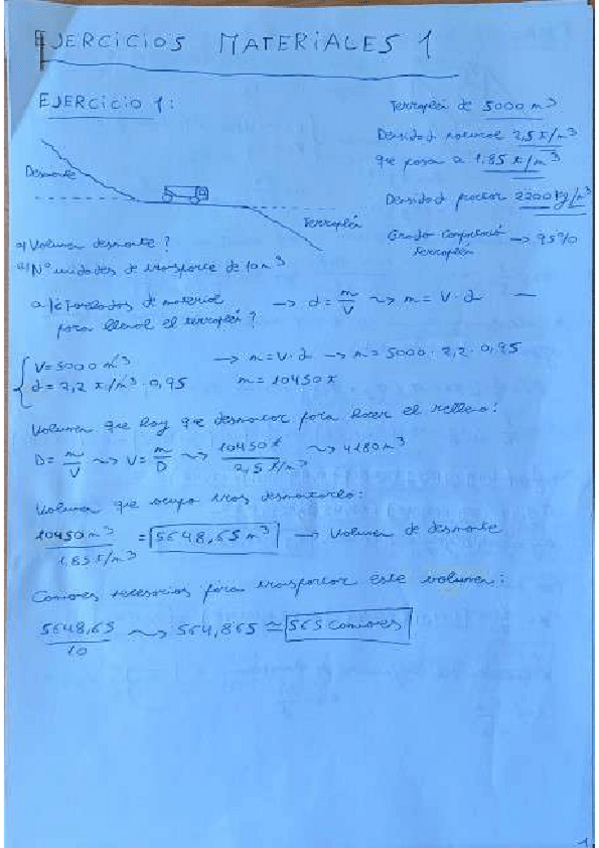 EJERCICIOS MATERIALES 1
EJERCICIO 1:
Terraplén de 5000 m³
Densidad natural 2,5 t/m³
que pasa a 1,85 t/m³
Densidad proctor 2200 kg/m³
Grado compactació → 95%
terraplén
Desmonte
Terraplén
a) Volumen desmonte?
Nº unidades de transporte de 10 m³
a) ¿Toneladas de material → d = m/V ⇝ m = V · d —
para llenar el terraplén?
V = 5000 m³ → m = V · d → m = 5000 · 2,2 · 0,95
d = 2,2 t/m³ · 0,95 m = 10450 t
Volumen que hay que desmontar para hacer el relleno:
D = m/V ⇝ V = m/D ⇝ 10450 t / 2,5 t/m³ ⇝ 4180 m³
Volumen que ocupa tras desmontarlo:
10450 m³ / 1,85 t/m³ = 5648,65 m³ → Volumen de desmonte
Camiones necesarios para transportar este volumen:
5648,65 / 10 ⇝ 564,865 ≃ 565 camiones
1